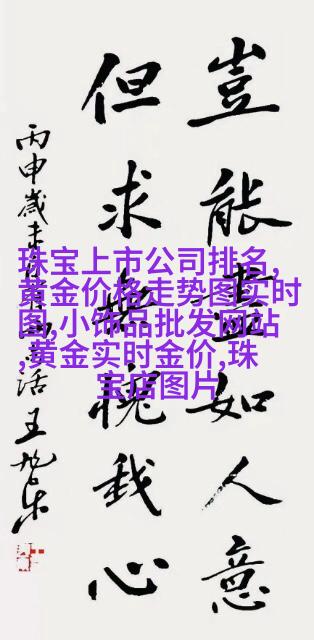 豈能盡如人意
但求無愧我心
丙申歲 王旭东
珠宝上市公司排名,
黄金价格走势图实时
图,小饰品批发网站
,黄金实时金价,珠
宝店图片